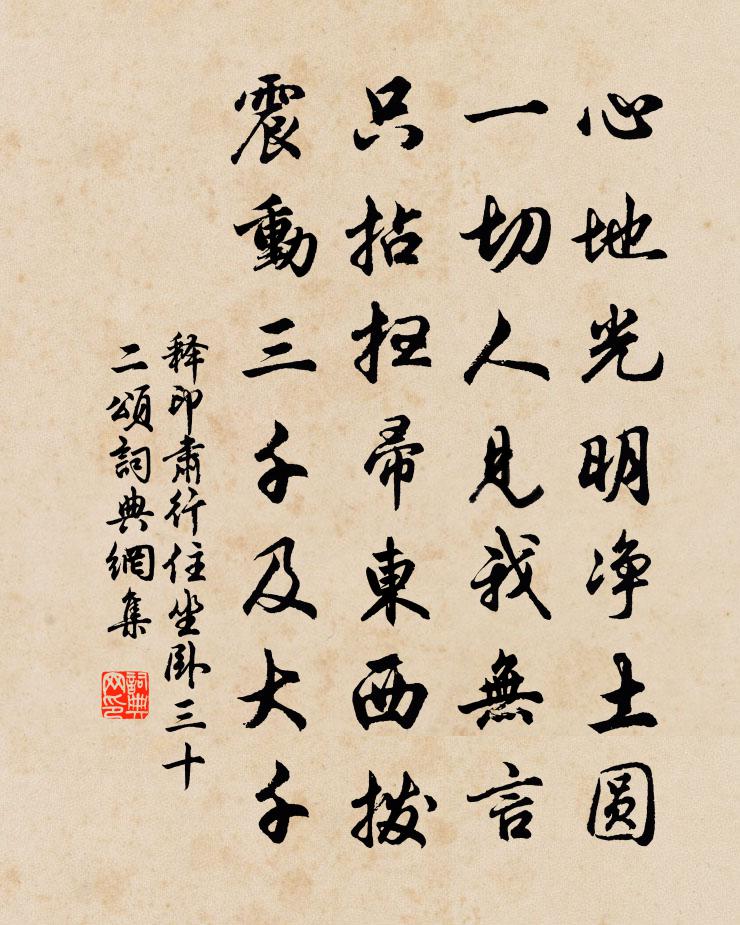 心地光明净土圆
一切人見我無言
只拈扫帚東西拨
震動三千及大千
释印肅行住坐卧三十
二頌詞典網集
詞典网印